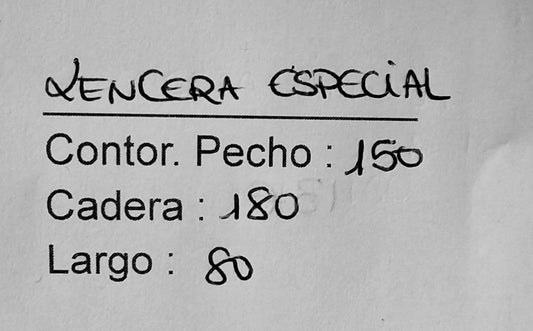 LENCERA ESPECIAL
Contor. Pecho : 150
Cadera : 180
Largo : 80